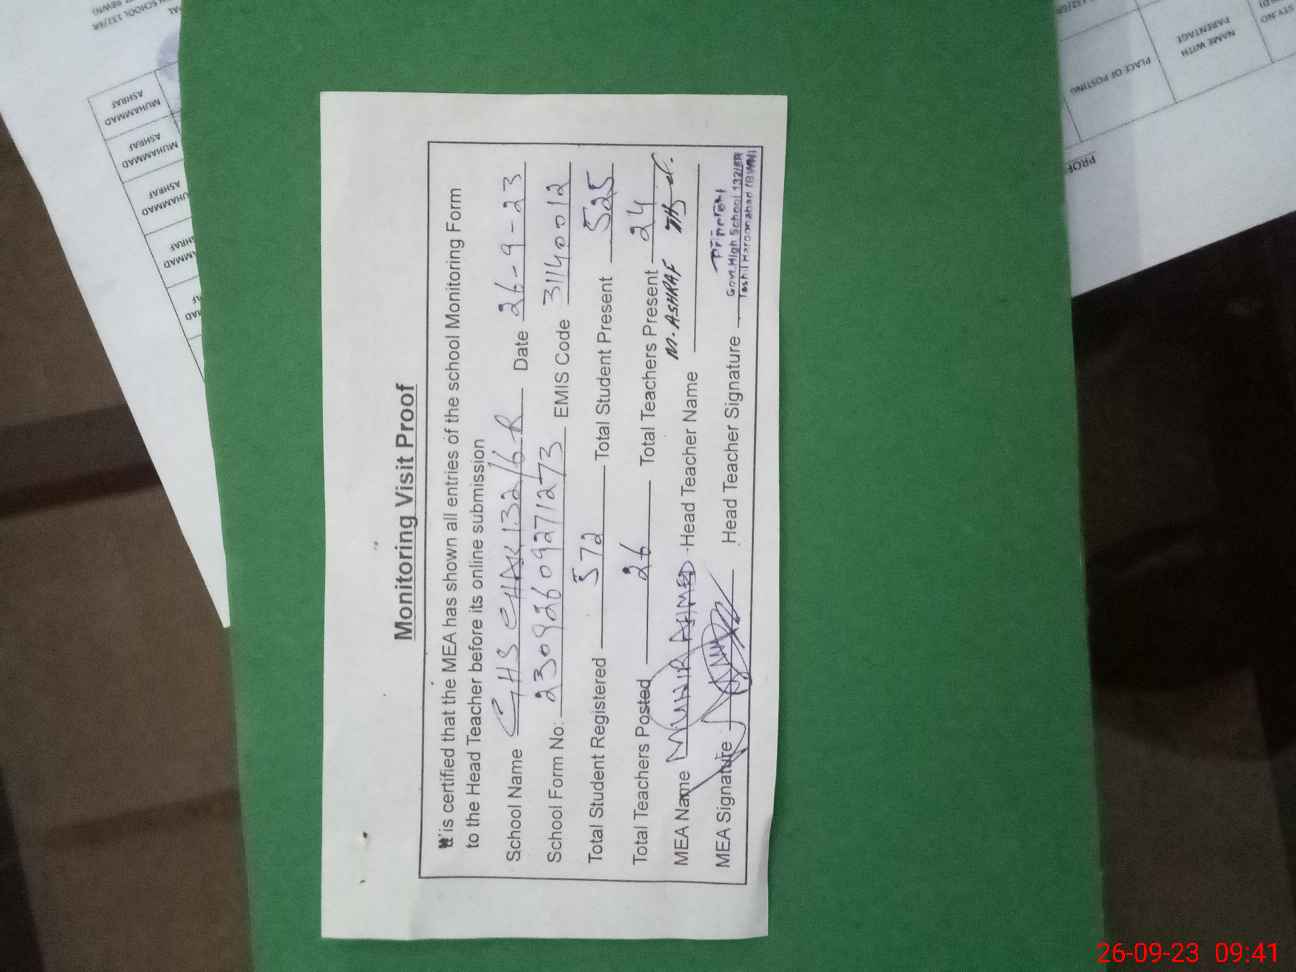 Monitoring Visit Proof
It is certified that the MEA has shown all entries of the school Monitoring Form
to the Head Teacher before its online submission
School Name GHS CHAK 132/6R Date 26-9-23
School Form No: 23092609271273 EMIS Code 31140012
Total Student Registered 572 Total Student Present 525
Total Teachers Posted 26 Total Teachers Present 24
MEA Name MUNIR AHMED Head Teacher Name M. ASHRAF
MEA Signature Head Teacher Signature
Principal
Govt. High School 132/6R
Tashil Haroonabad (BWN)
MUHAMMAD
ASHRAF
MUHAMMAD
ASHRAF
ASHRAF
NAME WITH
PARENTAGE
PLACE OF POSTING
26-09-23 09:41